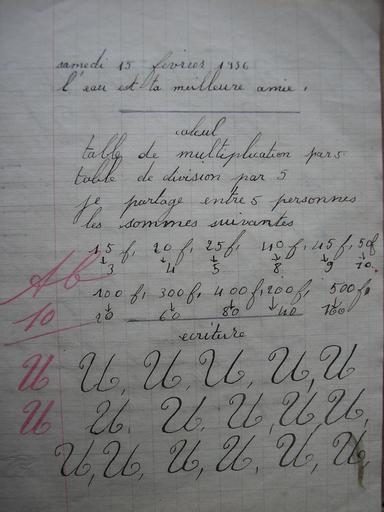 samedi 15 février 1936
l'eau est ta meilleure amie.
calcul
table de multiplication par 5
table de division par 5
je partage entre 5 personnes
les sommes suivantes
15 f, 20 f, 25 f, 40 f, 45 f, 50 f
3 4 5 8 9 10.
Ab
100 f, 300 f, 400 f, 200 f, 500 f,
20 60 80 40 100
10
ecriture
U U, U, U, U, U
U U, U, U, U, U,
U, U, U, U, U, U,